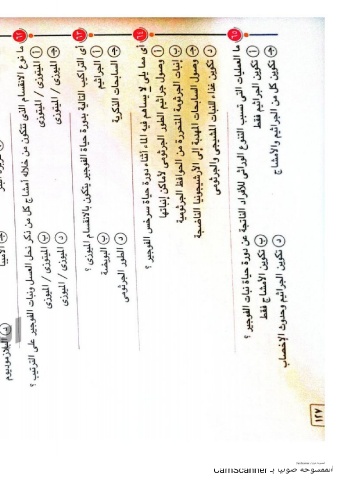 ٦٢ ما نوع الانقسام الذى تتكون من خلاله أمشاج كل من ذكر نحل العسل ونبات الفوجير على الترتيب ؟
أ الميتوزى / الميتوزى
ب الميتوزى / الميوزى
ج الميوزى / الميتوزى
د الميوزى / الميوزى
٦٣ أى التراكيب التالية بدورة حياة الفوجير يتكون بالانقسام الميوزى ؟
أ الجراثيم
ب البويضة
ج السابحات الذكرية
د الطور الجرثومى
٦٤ أى مما يلى لا يساهم فيه الماء أثناء دورة حياة سرخس الفوجير ؟
أ وصول جراثيم الطور الجرثومى لأماكن إنباتها
ب إنبات الجرثومة المتحررة من الحوافظ الجرثومية
ج وصول السابحات المهدبة إلى الأرشيجونيا الناضجة
د تكوين غذاء للنبات المشيجى والجرثومى
٦٥ ما العمليات التى تسبب التنوع الوراثى للأفراد الناتجة عن دورة حياة نبات الفوجير ؟
أ تكوين الجراثيم فقط
ب تكوين الأمشاج فقط
ج تكوين كل من الجراثيم والأمشاج
د تكوين الجراثيم وحدوث الإخصاب
١٢٧
د البلازموديوم
الممسوحة ضوئيا بـ CamScanner